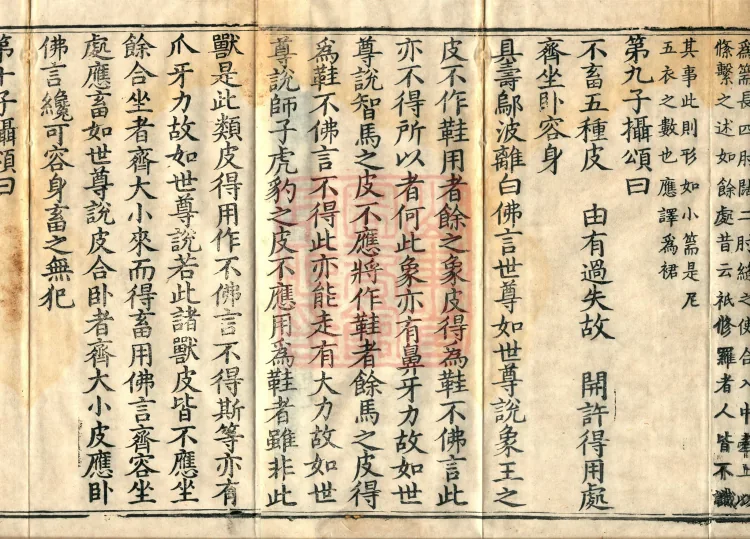 篅長四肘闊二肘縫之使合入中上以
絛繫之述如餘處昔云祇修羅者人皆不識
其事此則形如小篅是尼
五衣之數也應譯爲裙
第九子攝頌曰
不畜五種皮　由有過失故　開許得用處
齊坐卧容身
具壽鄔波離白佛言世尊如世尊說象王之
皮不作鞋用者餘之象皮得爲鞋不佛言此
亦不得所以者何此象亦有鼻牙力故如世
尊說智馬之皮不應將作鞋者餘馬之皮得
爲鞋不佛言不得此亦能走有大力故如世
尊說師子虎豹之皮不應用爲鞋者雖非此
獸是此類皮得用作不佛言不得斯等亦有
爪牙力故如世尊說若此諸獸皮皆不應坐
餘合坐者齊大小來而得畜用佛言齊容坐
處應畜如世尊說皮合卧者齊大小皮應卧
佛言纔可容身畜之無犯
第十子攝頌曰